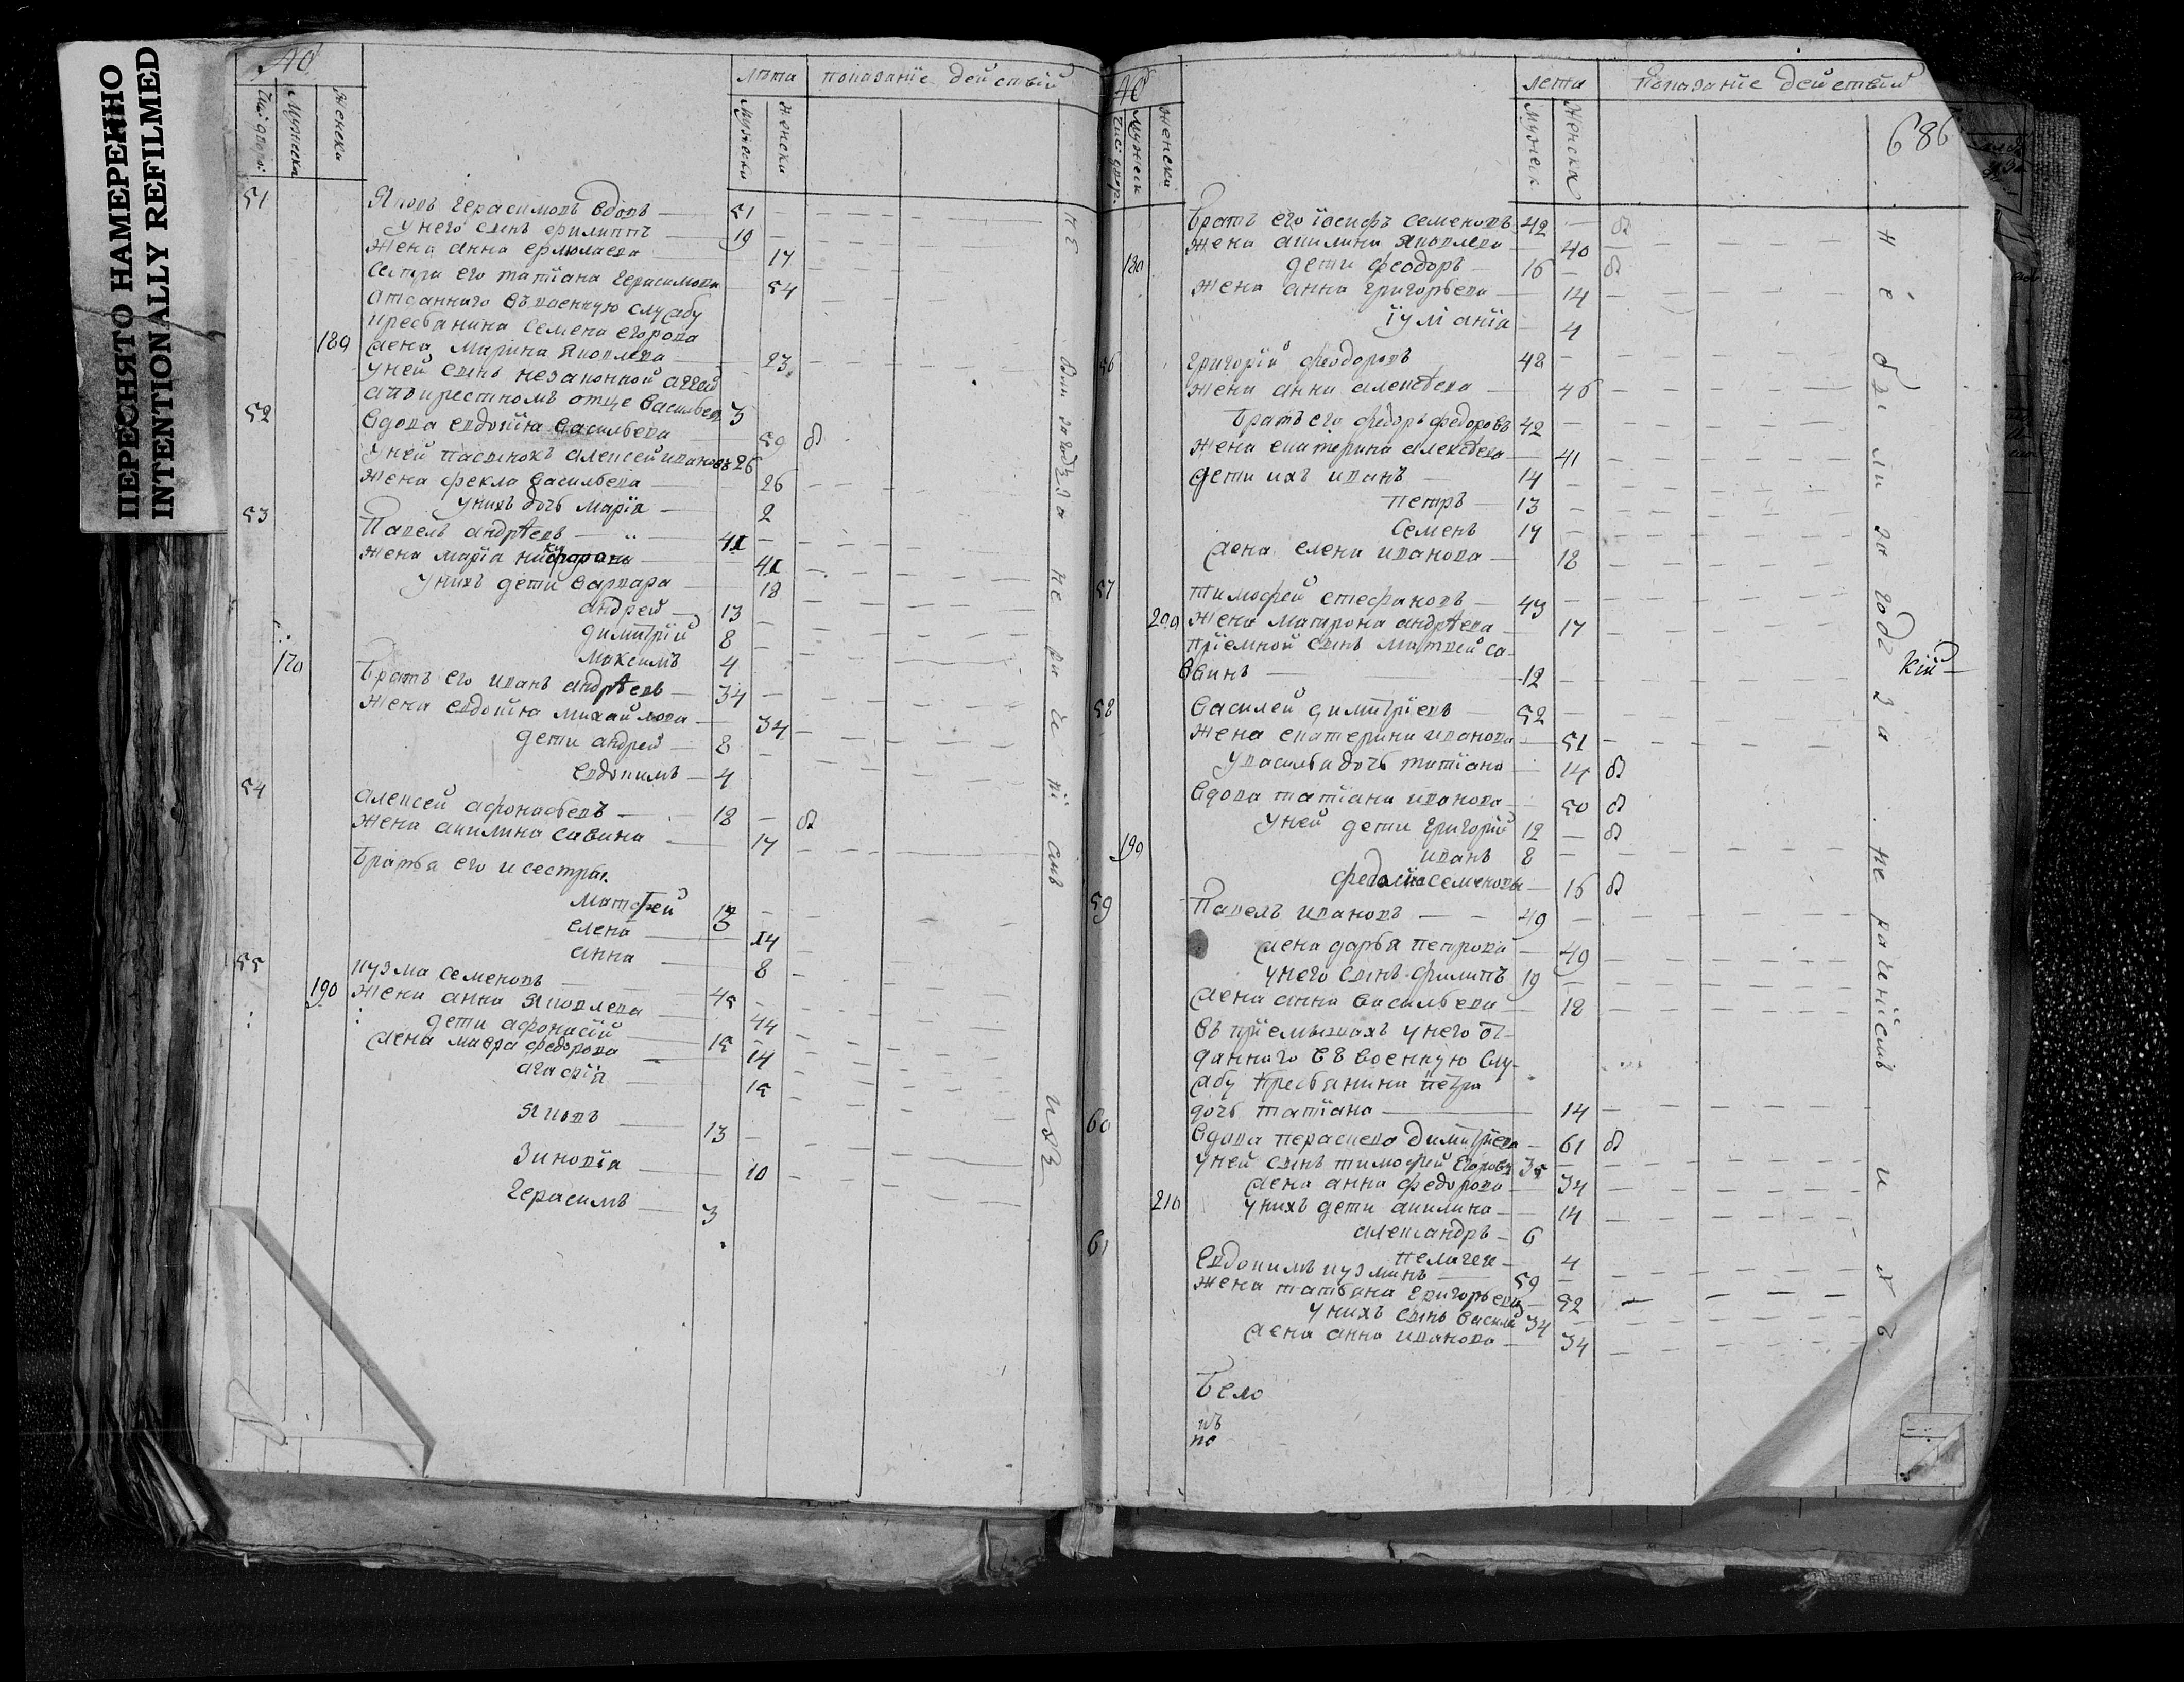 ПЕРЕСНЯТО НАМЕРЕННО
INTENTIONALLY REFILMED
лѣта показанïе действïй
Мужеска
Женска
Мужеска
Женска
51 Яковъ Герасимовъ вдовъ — 51
у него сынъ Филиппъ — 19
жена анна ермолаева — 17
сестра его татïана Герасимова 54
отданнаго въ военную службу
кресьянина Семена егорова
180 жена Марина Яковлева — 23
у ней сынъ незаконной
крестномъ отце васильевъ 3
52 вдова евдокïя васильева 59 в
у ней пасынокъ алексей ивановъ 26
жена фекла васильева — 26
у нихъ дочь марïя — 2
53 Павелъ андрѣевъ — 41
жена марïа — 41
у нихъ дети варвара — 18
андрей — 13
димитрïй 8
170 Максимъ 4
братъ его иванъ андрѣевъ — 34
жена евдокïя михайлова — 34
дети андрей — 8
евдокимъ — 4
54 алексей афонасьевъ — 18 — в
жена акилина савина — 17
братья его и сестры
матфей 13
елена — 14
анна — 8
55 кузма семеновъ — 45
190 жена анна Яковлева — 44
дети афонасïй — 15
жена мавра федорова — 14
агафïя — 15
Яковъ — 13
Зиновïя — 10
Герасимъ — 3
не были за годъ за не ра че нï емъ ихъ
лета показанïе действïй
Мужеск
Женска
Мужеск
Женска
686
братъ его ïосифъ семеновъ 42 — в
жена акилина Яковлева — 40
180 дети феодоръ — 16 — в
жена анна григорьева — 14
ïулïанïя — 4
56 григорïй феодоровъ 48
жена анна алексѣева — 46
братъ его федоръ федоровъ 42
жена екатерина алексѣева — 41
дети ихъ иванъ — 14
петръ — 13
семенъ 17
жена елена иванова — 18
57 тимофей стефановъ — 43
200 жена матрона андрѣева — 17
прïемной сынъ матвей са-
винъ — 12
58 василей димитрïевъ — 52
жена екатерина иванова — 51
у василья дочь татïана 14 в
вдова татïана иванова — 50 в
у ней дети григорïй 12 — в
190 иванъ 8
семенова — 16 в
59 Павелъ ивановъ — 49
жена дарья петрова — 49
у него сынъ филипъ 19
жена анна васильева — 18
въ прïемышахъ у него от-
даннаго въ военную слу-
жбу кресьянина петра
дочь татïана — 14
60 вдова параскева димитрïева — 61 в
у ней сынъ тимофей егоровъ 35
жена анна федорова — 34
210 у нихъ дети акилина — 14
александръ — 6
пелагея — 4
61 евдокимъ кузминъ — 59
жена татьяна григорьева — 52
у нихъ сынъ василй 34
жена анна иванова — 34
не были за годъ за не рачнïемъ ихъ
кïй
Село